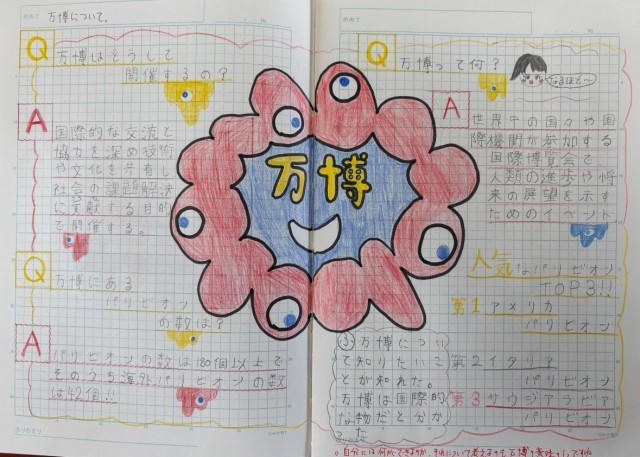 めあて 万博について。
Q 万博はどうして
開催するの?
A 国際的な交流と
協力を深め技術
や文化を共有し
社会の課題解決
に貢献する目的
で開催する。
Q 万博にある
パリビオン
の数は?
A パリビオンの数は180個以上で
そのうち海外パリビオンの数
は42個!!
ふりかえり
万博
めあて
Q 万博って何?
なるほど〜
A 世界中の国々や国
際機関が参加する
国際博覧会で
人類の進歩や将
来の展望を示す
ためのイベント
人気なパリビオン
TOP3!!
第1 アメリカ
パリビオン
第2 イタリア
パリビオン
第3 サウジアラビア
パリビオン
ふ 万博につい
て知りたいこ
とが知れた。
万博は国際的
な物だと分か
った